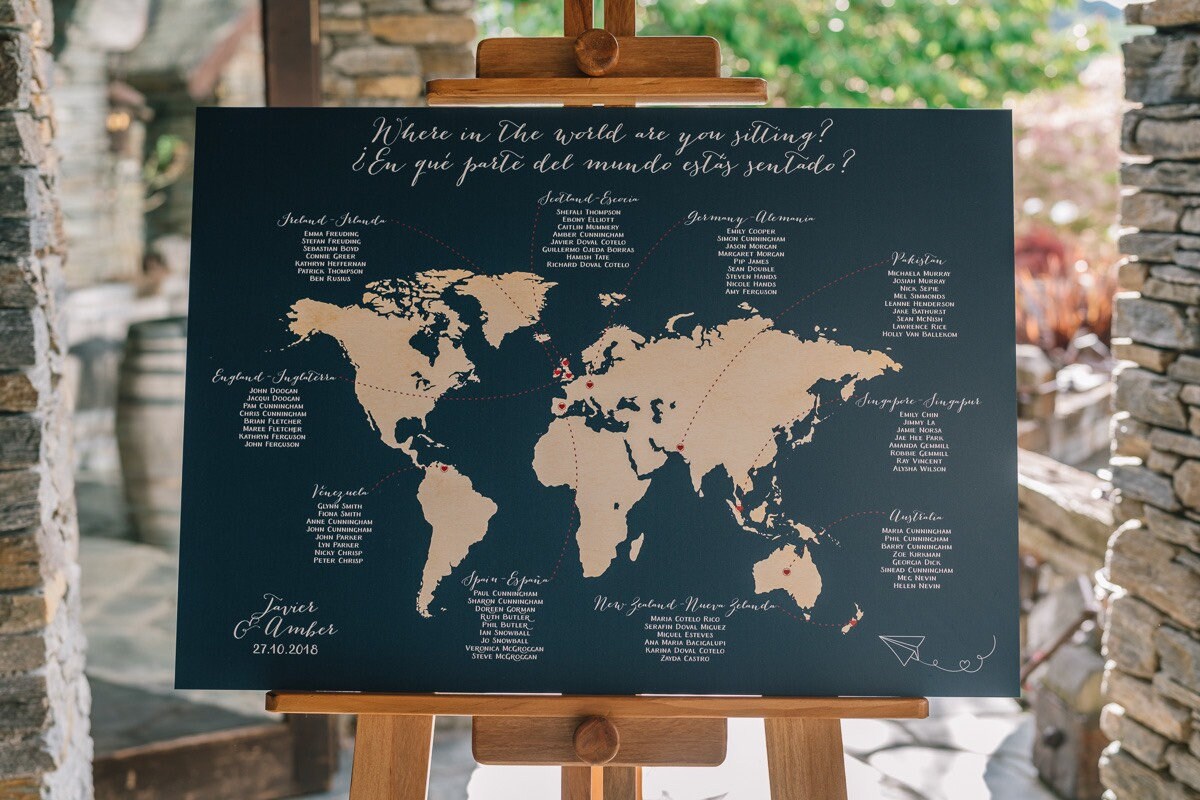 Where in the world are you sitting?
¿En qué parte del mundo estás sentado?
Scotland-Escocia
SHEFALI THOMPSON
EBONY ELLIOTT
CAITLIN MUMMERY
AMBER CUNNINGHAM
JAVIER DOVAL COTELO
GUILLERMO OJEDA BORRAS
HAMISH TATE
RICHARD DOVAL COTELO
Ireland-Irlanda
EMMA FREUDING
STEFAN FREUDING
SEBASTIAN BOYD
CONNIE GREER
KATHRYN HEFFERNAN
PATRICK THOMPSON
BEN RUSIUS
Germany-Alemania
EMILY COOPER
SIMON CUNNINGHAM
JASON MORGAN
MARGARET MORGAN
PIP JAMES
SEAN DOUBLE
STEVEN HANDS
NICOLE HANDS
AMY FERGUSON
Pakistan
MICHAELA MURRAY
JOSIAH MURRAY
NICK SEPIE
MEL SIMMONDS
LEANNE HENDERSON
JAKE BATHURST
SEAN MCNISH
LAWRENCE RICE
HOLLY VAN BALLEKOM
England-Inglaterra
JOHN DOOGAN
JACQUI DOOGAN
PAM CUNNINGHAM
CHRIS CUNNINGHAM
BRIAN FLETCHER
MAREE FLETCHER
KATHRYN FERGUSON
JOHN FERGUSON
Singapore-Singapur
EMILY CHIN
JIMMY LA
JAMIE NORSA
JAE HEE PARK
AMANDA GEMMILL
ROBBIE GEMMILL
RAY VINCENT
ALYSHA WILSON
Venezuela
GLYNN SMITH
FIONA SMITH
ANNE CUNNINGHAM
JOHN CUNNINGHAM
JOHN PARKER
LYN PARKER
NICKY CHRISP
PETER CHRISP
Australia
MARIA CUNNINGHAM
PHIL CUNNINGHAM
BARRY CUNNINGAHM
ZOE KIRKMAN
GEORGIA DICK
SINEAD CUNNINGHAM
MEG NEVIN
HELEN NEVIN
Spain-España
PAUL CUNNINGHAM
SHARON CUNNINGHAM
DOREEN GORMAN
RUTH BUTLER
PHIL BUTLER
IAN SNOWBALL
JO SNOWBALL
VERONICA MCGROGGAN
STEVE MCGROGGAN
New Zealand-Nueva Zelanda
MARIA COTELO RICO
SERAFIN DOVAL MIGUEZ
MIGUEL ESTEVES
ANA MARIA BACIGALUPI
KARINA DOVAL COTELO
ZAYDA CASTRO
Javier
& Amber
27.10.2018